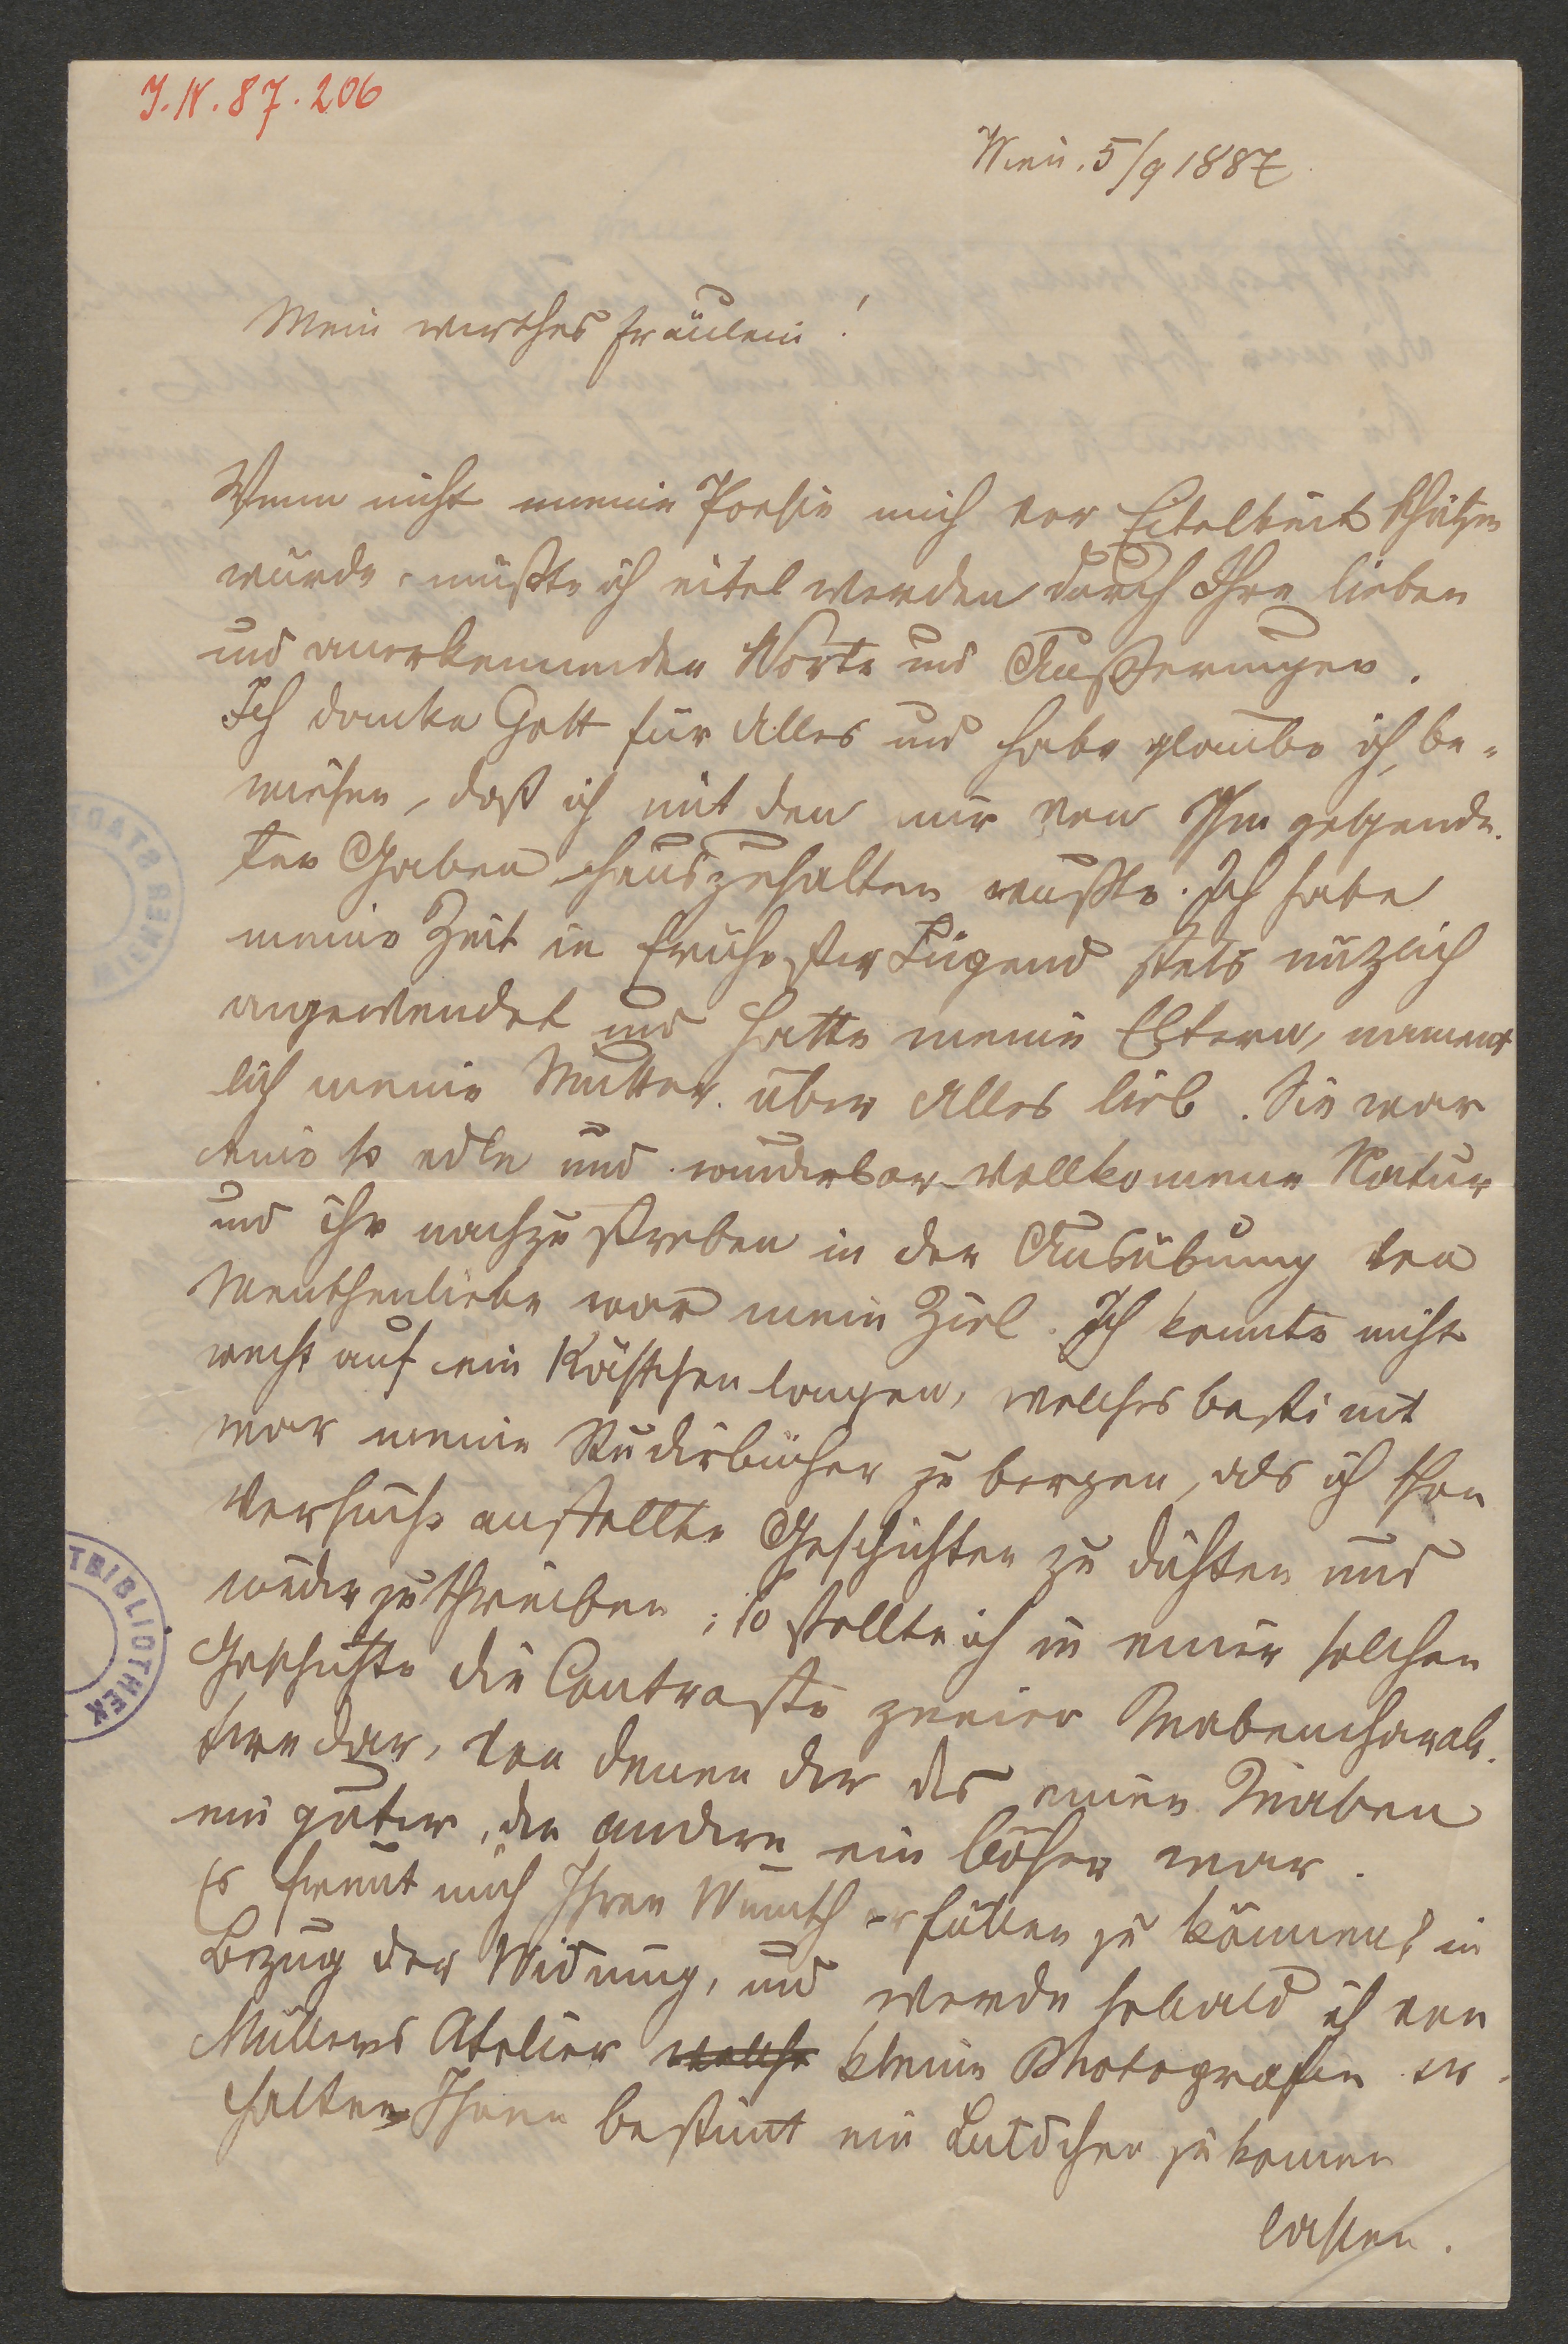 J.N. 87.206
Wien. 5/9 1887
Mein werthes Fräulein!
Wenn nicht meine Poesie mich vor Eitelkeit schützen
würde, müßte ich eitel werden durch Ihre lieben
und anerkennenden Worte und Äußerungen.
Ich danke Gott für Alles und habe glaube ich, be-
wiesen, daß ich mit den mir von Ihm gespende-
ten Gaben hauszuhalten wußte. Ich habe
meine Zeit in frühester Jugend stets nüzlich
angewendet und hatte meine Eltern, nament
lich meine Mutter über Alles lieb. Sie war
eine so edle und wunderbar vollkommene Natur
und ihr nachzustreben in der Ausübung von
Menschenliebe war mein Ziel. Ich konnte nicht
recht auf ein Kästchen langen, welches bestimt
war meine Studirbücher zu bergen, als ich schon
Versuche anstellte Geschichten zu dichten und
niederzuschreiben; so stellte ich in einer solchen
Geschichte die Contraste zweier Knabencharak-
tere dar, von denen der des einen Knaben
ein guter, der andere ein böser war.
Es freut mich Ihren Wunsch erfüllen zu können, in
Bezug der Widmung, und werde sobald ich von
Müllers Atelier welche kleine Photografien er-
halten Ihnen bestimt ein Bildchen zukomen
lassen.
TBIBLIOTHEK